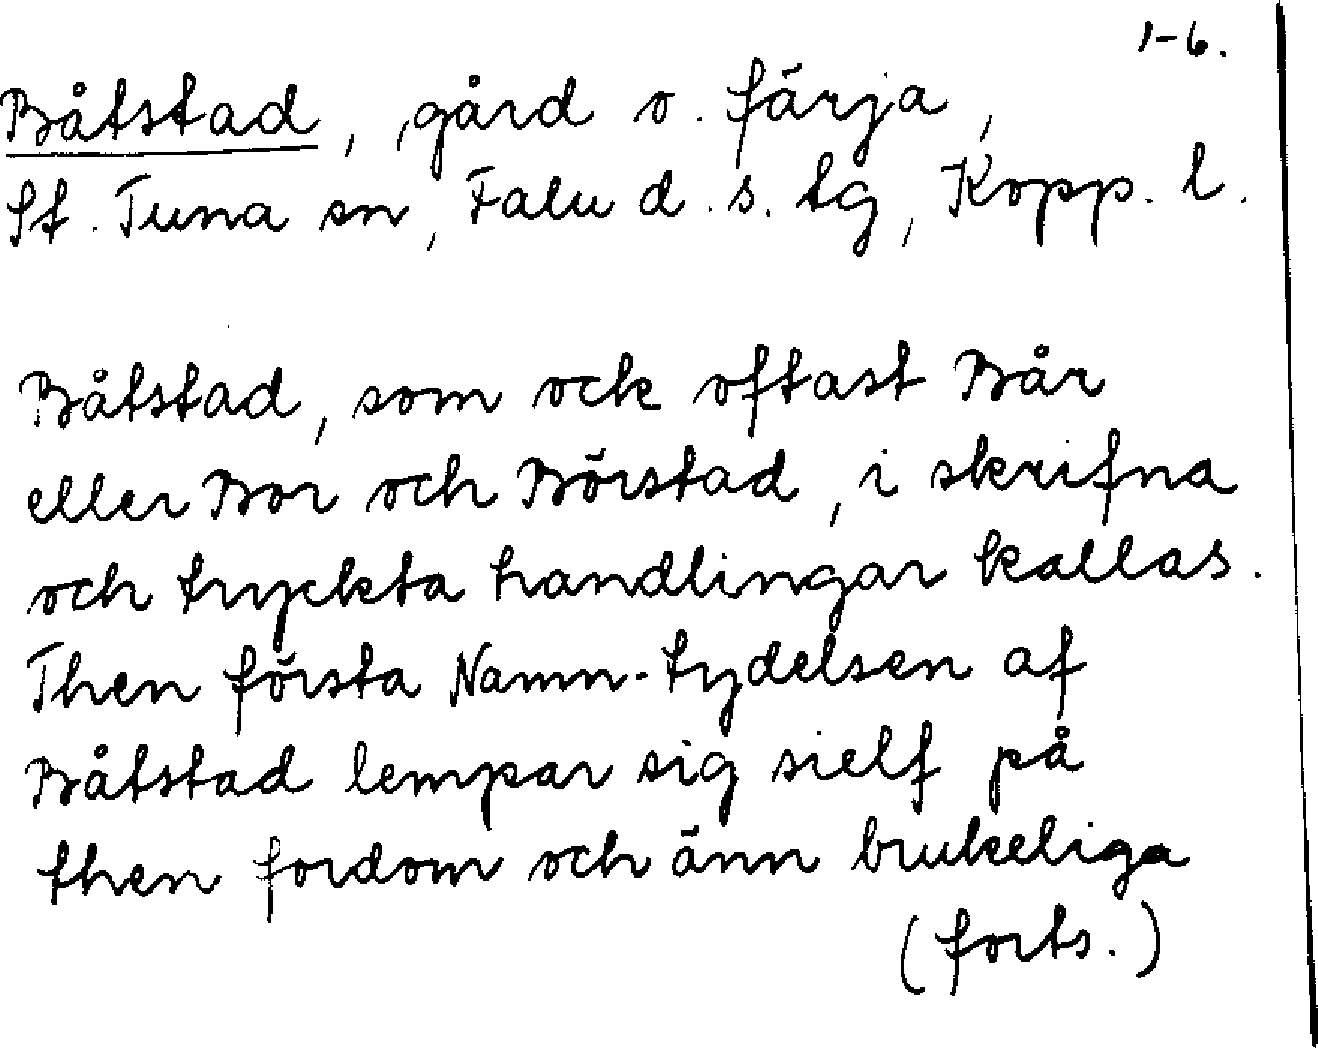 1-6.
Båtstad, gård o. färja,
St. Tuna sn, Falu d.s. tg, Kopp. l.
Båtstad, som ock oftast Bår
eller Bor och Börstad, i skrifna
och tryckta handlingar kallas.
Then första Namn-tydelsen af
Båtstad lempar sig sielf på
then fordom och änn brukeliga
(forts.)